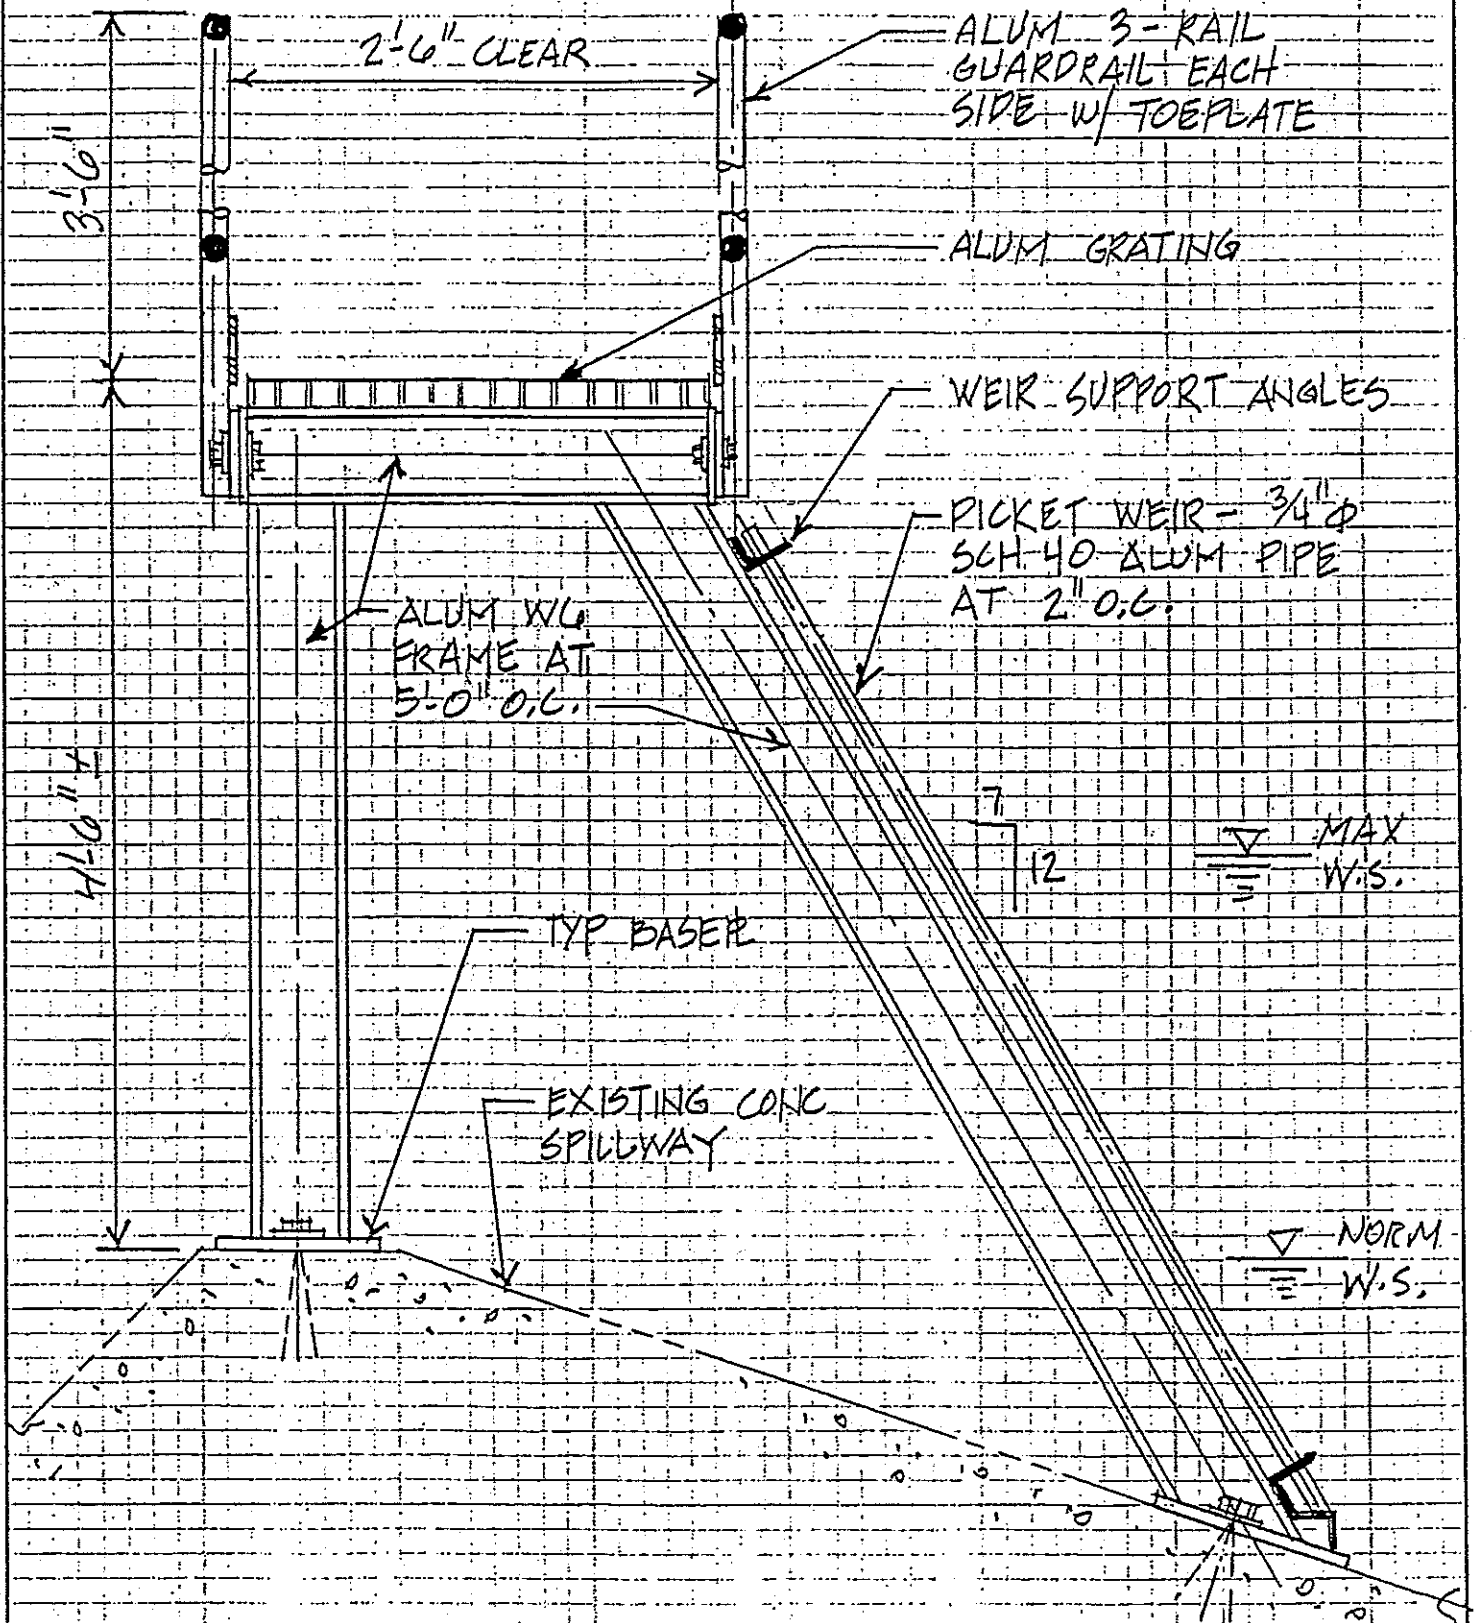 2'-6" CLEAR
ALUM 3-RAIL
GUARDRAIL EACH
SIDE W/ TOEPLATE
3'-6"
ALUM GRATING
WEIR SUPPORT ANGLES
PICKET WEIR - 3/4"φ
SCH 40 ALUM PIPE
AT 2" O.C.
ALUM W6
FRAME AT
5'-0" O.C.
4'-6" ±
7
12
MAX
W.S.
TYP BASE PL
EXISTING CONC
SPILLWAY
NORM
W.S.